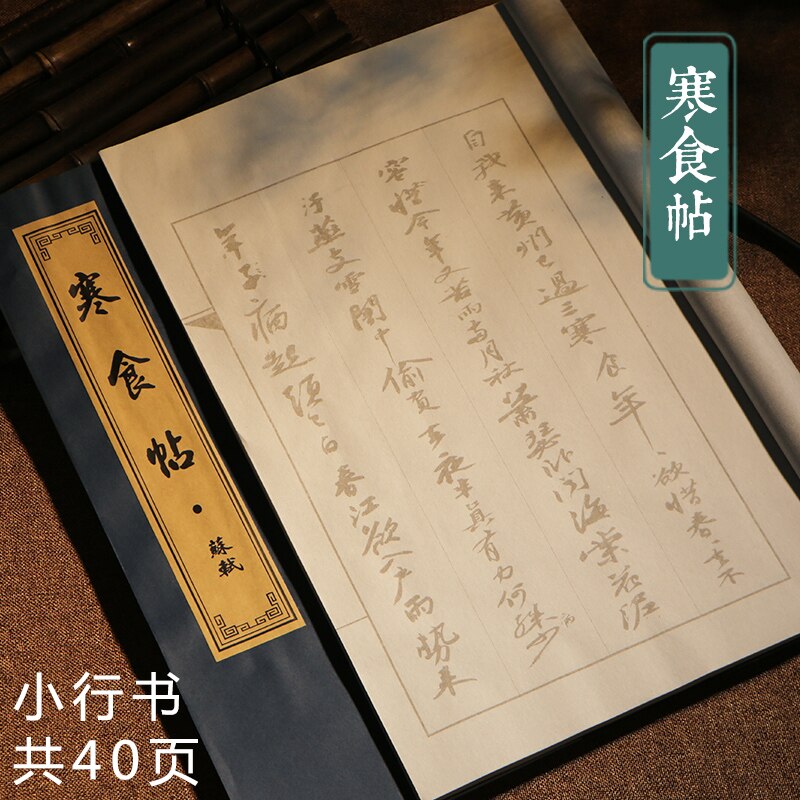 寒食帖
自我来黄州已過三寒食年、欲惜春、去不
容惜今年又苦雨兩月秋蕭瑟卧聞海棠花泥
汙燕支雪闇中偷負去夜半真有力何殊少病
年子病起頭已白春江欲入戶雨勢来
寒食帖·蘇軾
小行书
共40页